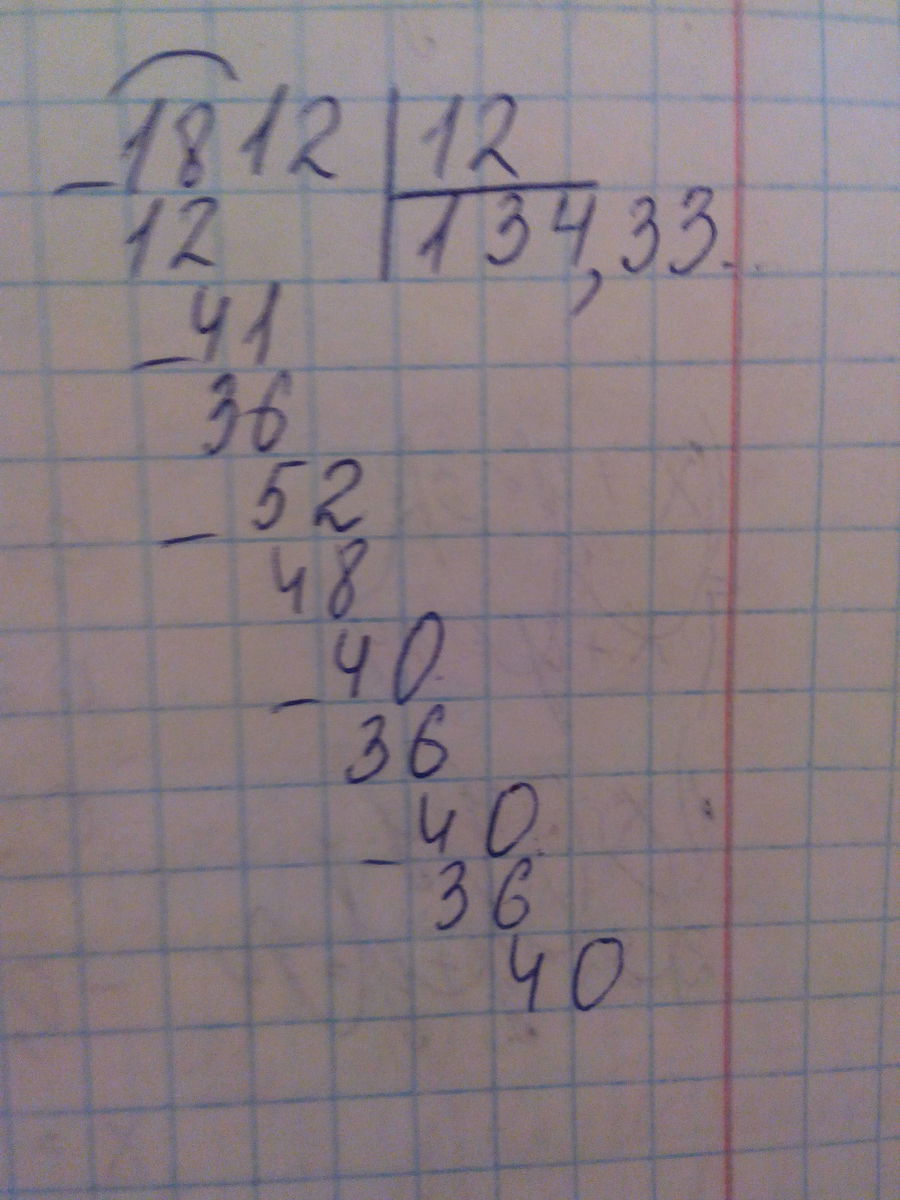 -1812 | 12
12 | 134,33...
-41
36
-52
48
-40
36
-40
36
40